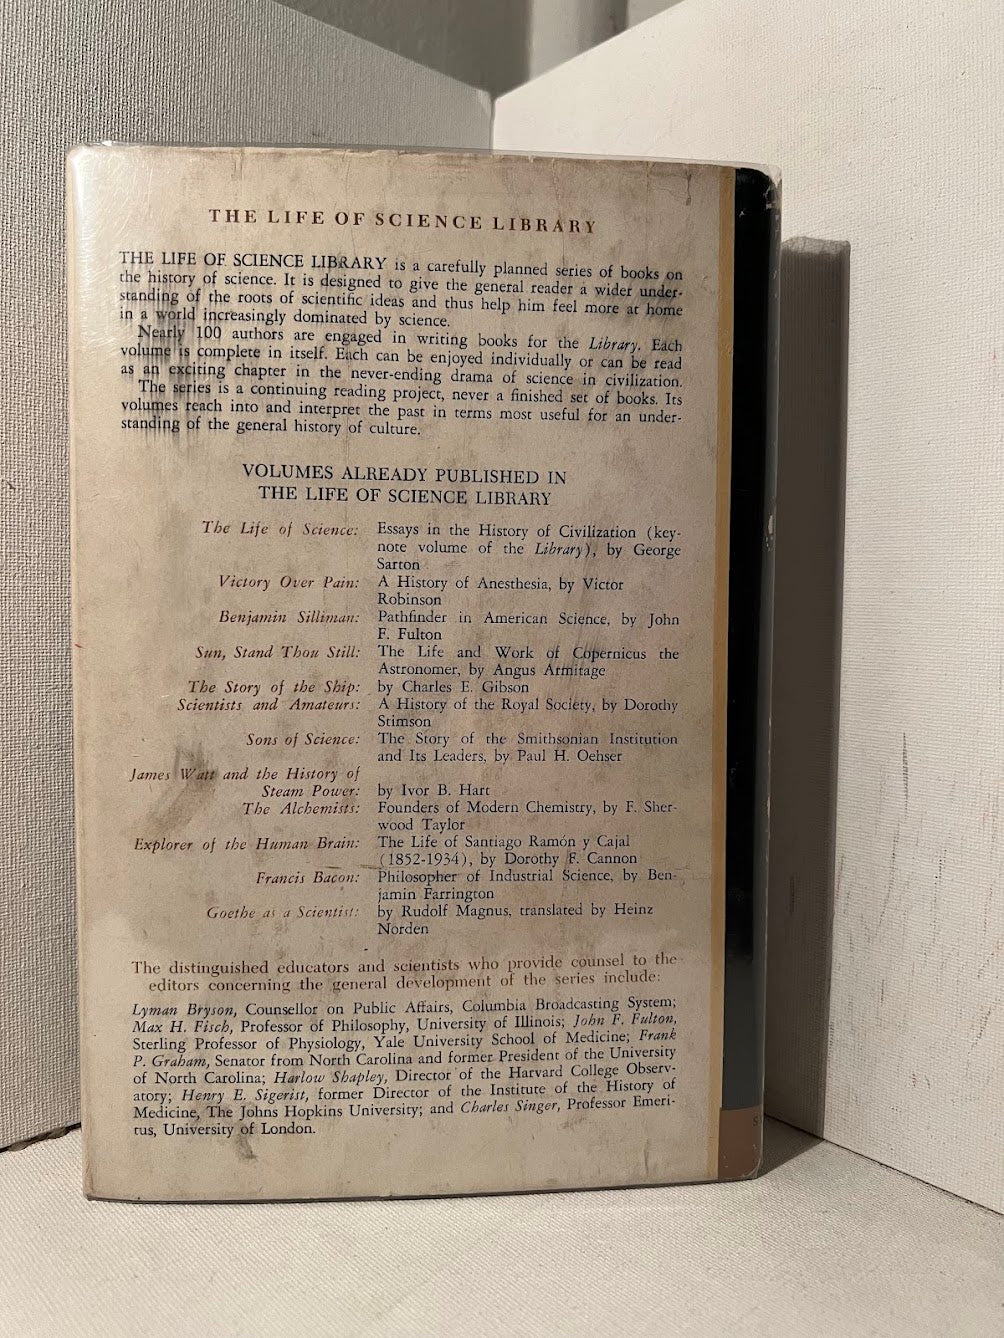 THE LIFE OF SCIENCE LIBRARY
THE LIFE OF SCIENCE LIBRARY is a carefully planned series of books on
the history of science. It is designed to give the general reader a wider under-
standing of the roots of scientific ideas and thus help him feel more at home
in a world increasingly dominated by science.
Nearly 100 authors are engaged in writing books for the Library. Each
volume is complete in itself. Each can be enjoyed individually or can be read
as an exciting chapter in the never-ending drama of science in civilization.
The series is a continuing reading project, never a finished set of books. Its
volumes reach into and interpret the past in terms most useful for an under-
standing of the general history of culture.
VOLUMES ALREADY PUBLISHED IN
THE LIFE OF SCIENCE LIBRARY
The Life of Science: Essays in the History of Civilization (key-
note volume of the Library), by George
Sarton
Victory Over Pain: A History of Anesthesia, by Victor
Robinson
Benjamin Silliman: Pathfinder in American Science, by John
F. Fulton
Sun, Stand Thou Still: The Life and Work of Copernicus the
Astronomer, by Angus Armitage
The Story of the Ship: by Charles E. Gibson
Scientists and Amateurs: A History of the Royal Society, by Dorothy
Stimson
Sons of Science: The Story of the Smithsonian Institution
and Its Leaders, by Paul H. Oehser
James Watt and the History of
Steam Power: by Ivor B. Hart
The Alchemists: Founders of Modern Chemistry, by F. Sher-
wood Taylor
Explorer of the Human Brain: The Life of Santiago Ramón y Cajal
(1852-1934), by Dorothy F. Cannon
Francis Bacon: Philosopher of Industrial Science, by Ben-
jamin Farrington
Goethe as a Scientist: by Rudolf Magnus, translated by Heinz
Norden
The distinguished educators and scientists who provide counsel to the
editors concerning the general development of the series include:
Lyman Bryson, Counsellor on Public Affairs, Columbia Broadcasting System;
Max H. Fisch, Professor of Philosophy, University of Illinois; John F. Fulton,
Sterling Professor of Physiology, Yale University School of Medicine; Frank
P. Graham, Senator from North Carolina and former President of the University
of North Carolina; Harlow Shapley, Director of the Harvard College Observ-
atory; Henry E. Sigerist, former Director of the Institute of the History of
Medicine, The Johns Hopkins University; and Charles Singer, Professor Emeri-
tus, University of London.